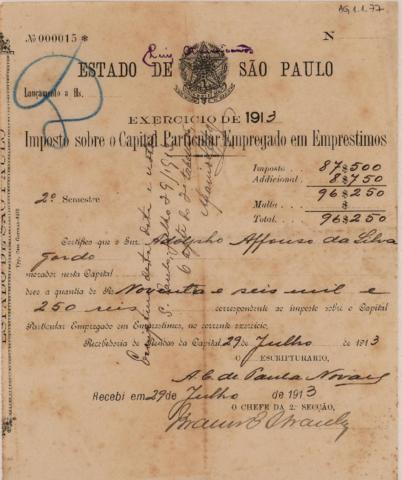 AG.1.1.77
№ 000015 *
N
ESTADO DE SÃO PAULO
Lançamento a fls.
EXERCICIO DE 1913
Imposto sobre o Capital Particular Empregado em Emprestimos
Imposto 87$500
Addicional 8$750
96$250
2º Semestre
Multa $
Total 96$250
Certifico que o Snr. Adolpho Affonso da Silva
Gordo
morador nesta Capital
deve a quantia de Rs. Noventa e seis mil e
250 reis correspondente ao imposto sobre o Capital
Particular Empregado em Emprestimos, no corrente exercicio.
Recebedoria de Rendas da Capital, 29 de Julho de 1913
O ESCRIPTURARIO,
A. C. de Paula Novaes
Recebi em 29 de Julho de 1913
O CHEFE DA 2ª SECÇÃO,
ESTADO DE SÃO PAULO